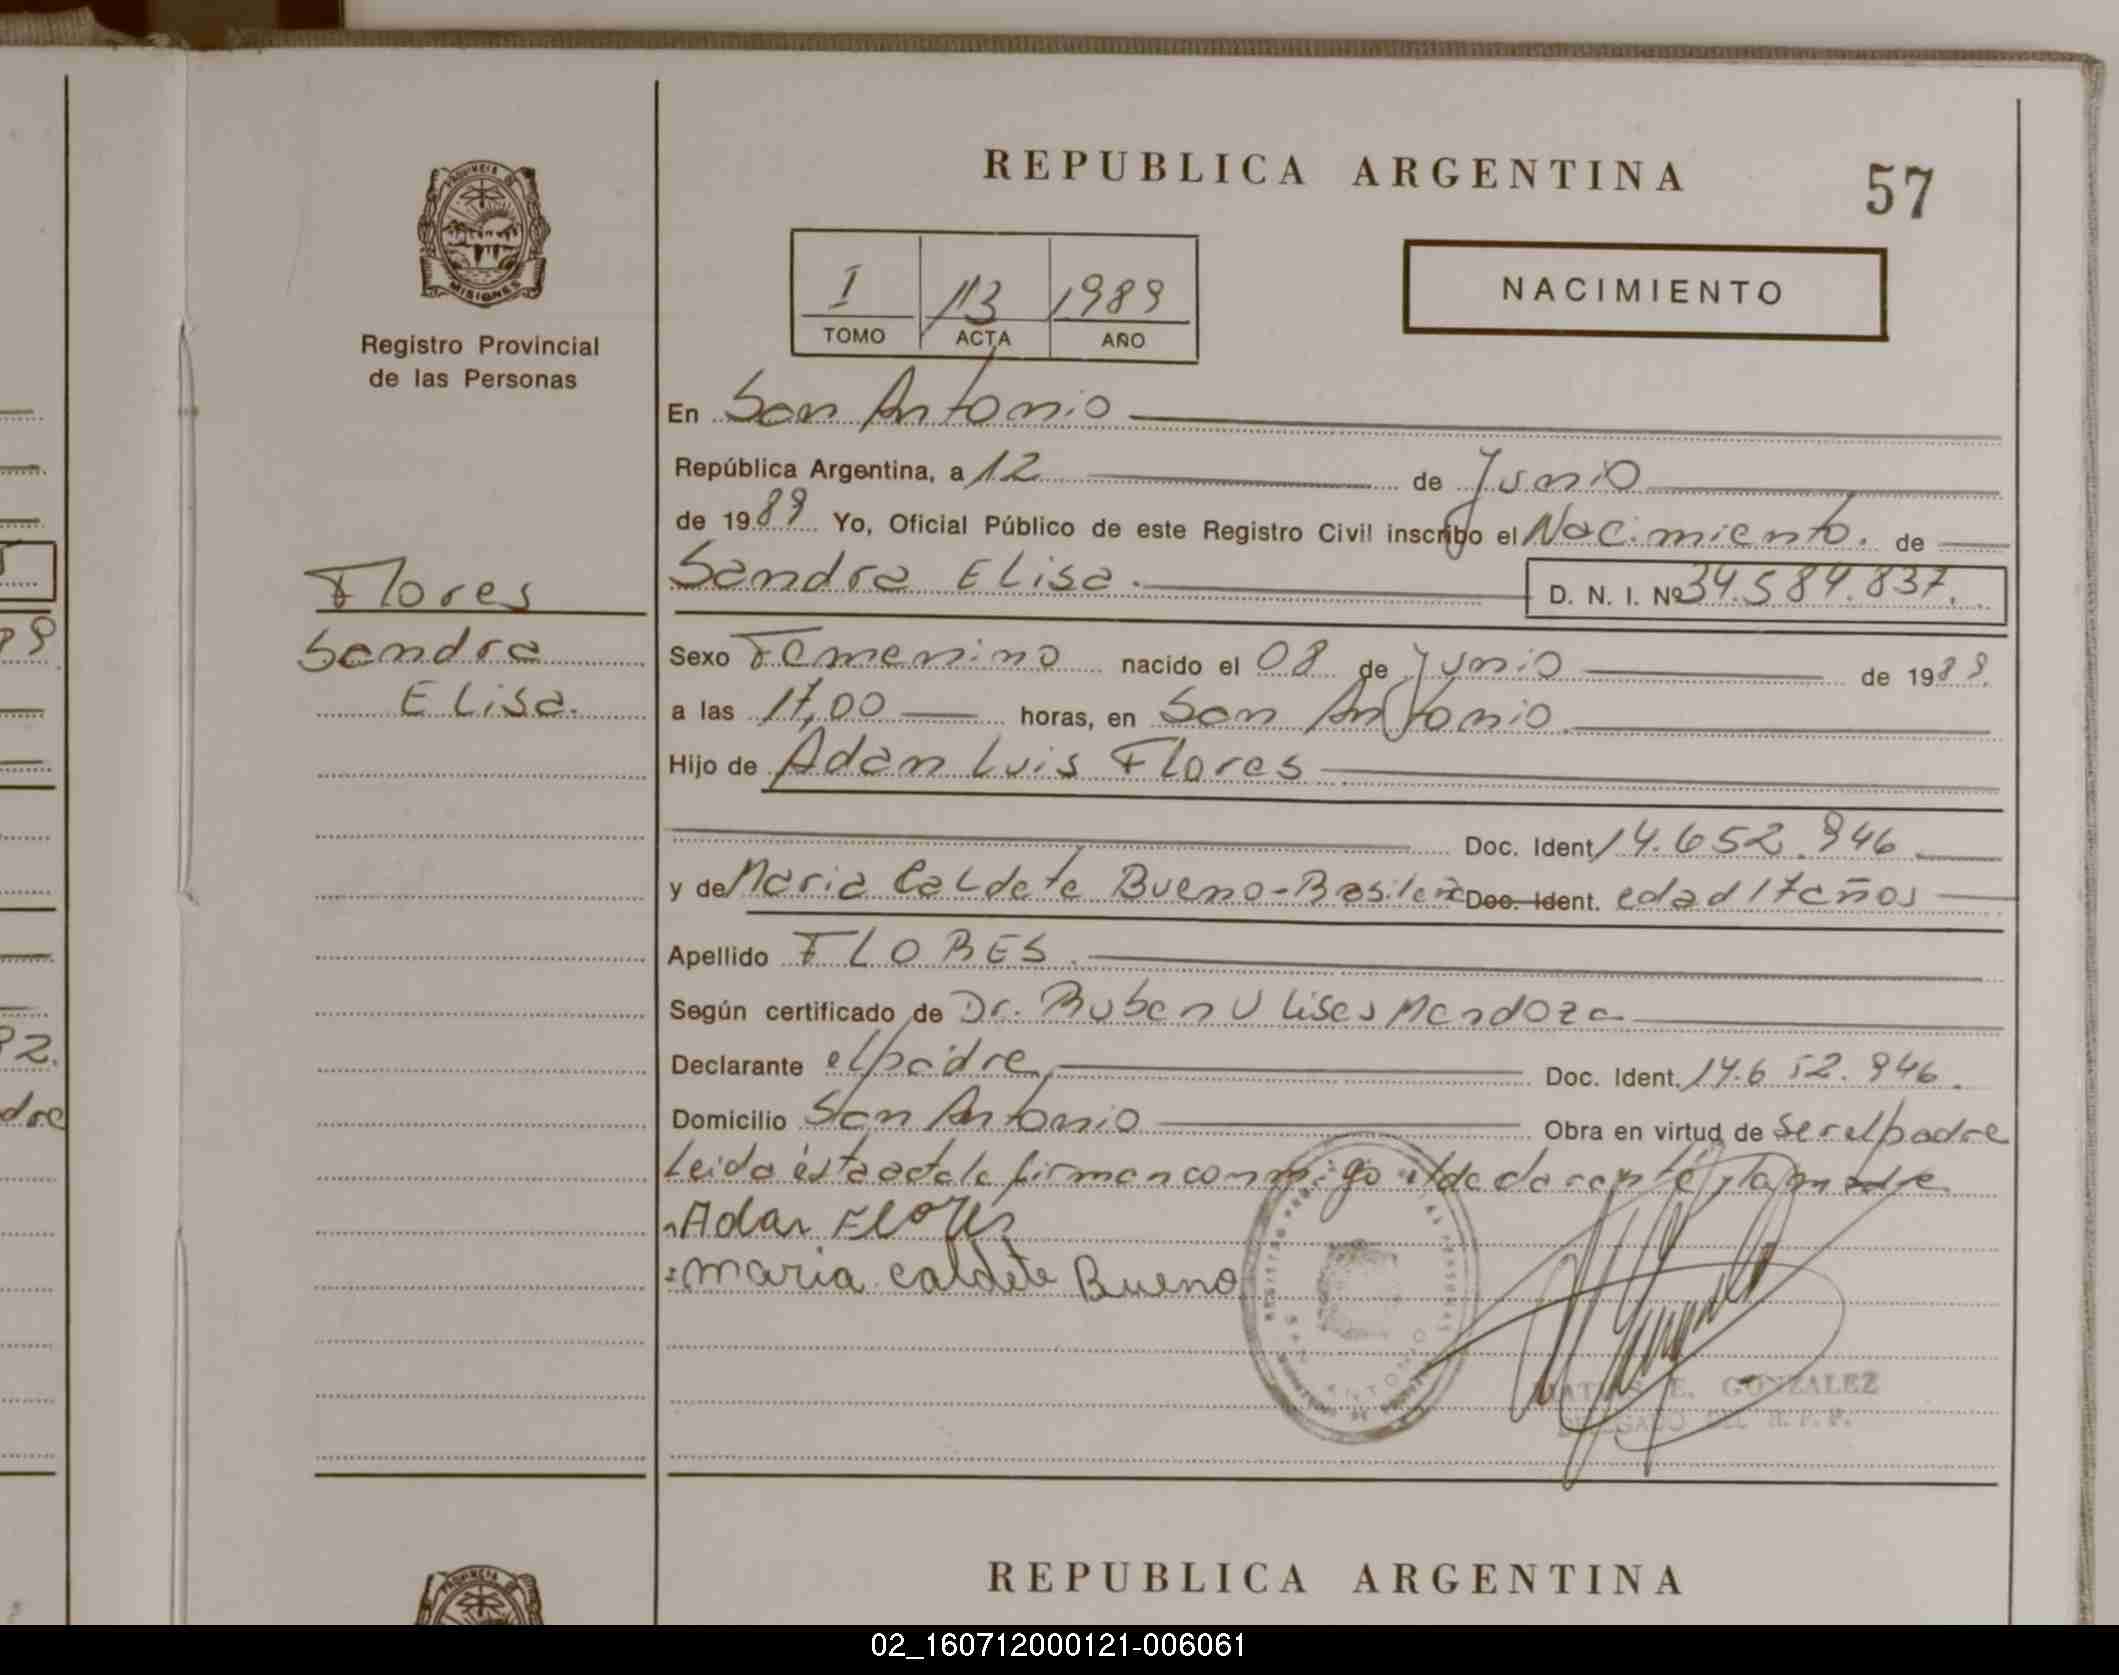 REPUBLICA ARGENTINA
57
PROVINCIA DE
MISIONES
Registro Provincial
de las Personas
I 113 1989
TOMO ACTA AÑO
NACIMIENTO
En San Antonio
República Argentina, a 12 de Junio
de 1989 Yo, Oficial Público de este Registro Civil inscribo el Nacimiento. de
Sandra Elisa. D. N. I. Nº 34.589.837.
Flores
Sandra
Elisa.
Sexo Femenino nacido el 08 de Junio de 1989.
a las 17,00 horas, en San Antonio
Hijo de Adan Luis Flores
Doc. Ident. 14.652.946
y de Maria Caldete Bueno-Brasileña Doc. Ident. edad 17 años
Apellido FLORES.
Según certificado de Dr. Ruben Ulises Mendoza
Declarante el padre Doc. Ident. 14.652.946.
Domicilio San Antonio Obra en virtud de ser el padre
Leida ésta acta la firman conmigo el declarante y la madre
Adan Flores
maria caldete Bueno
SAN ANTONIO
MATIAS E. GONZALEZ
DELEGADO DEL R. P. P.
REPUBLICA ARGENTINA
02_160712000121-006061